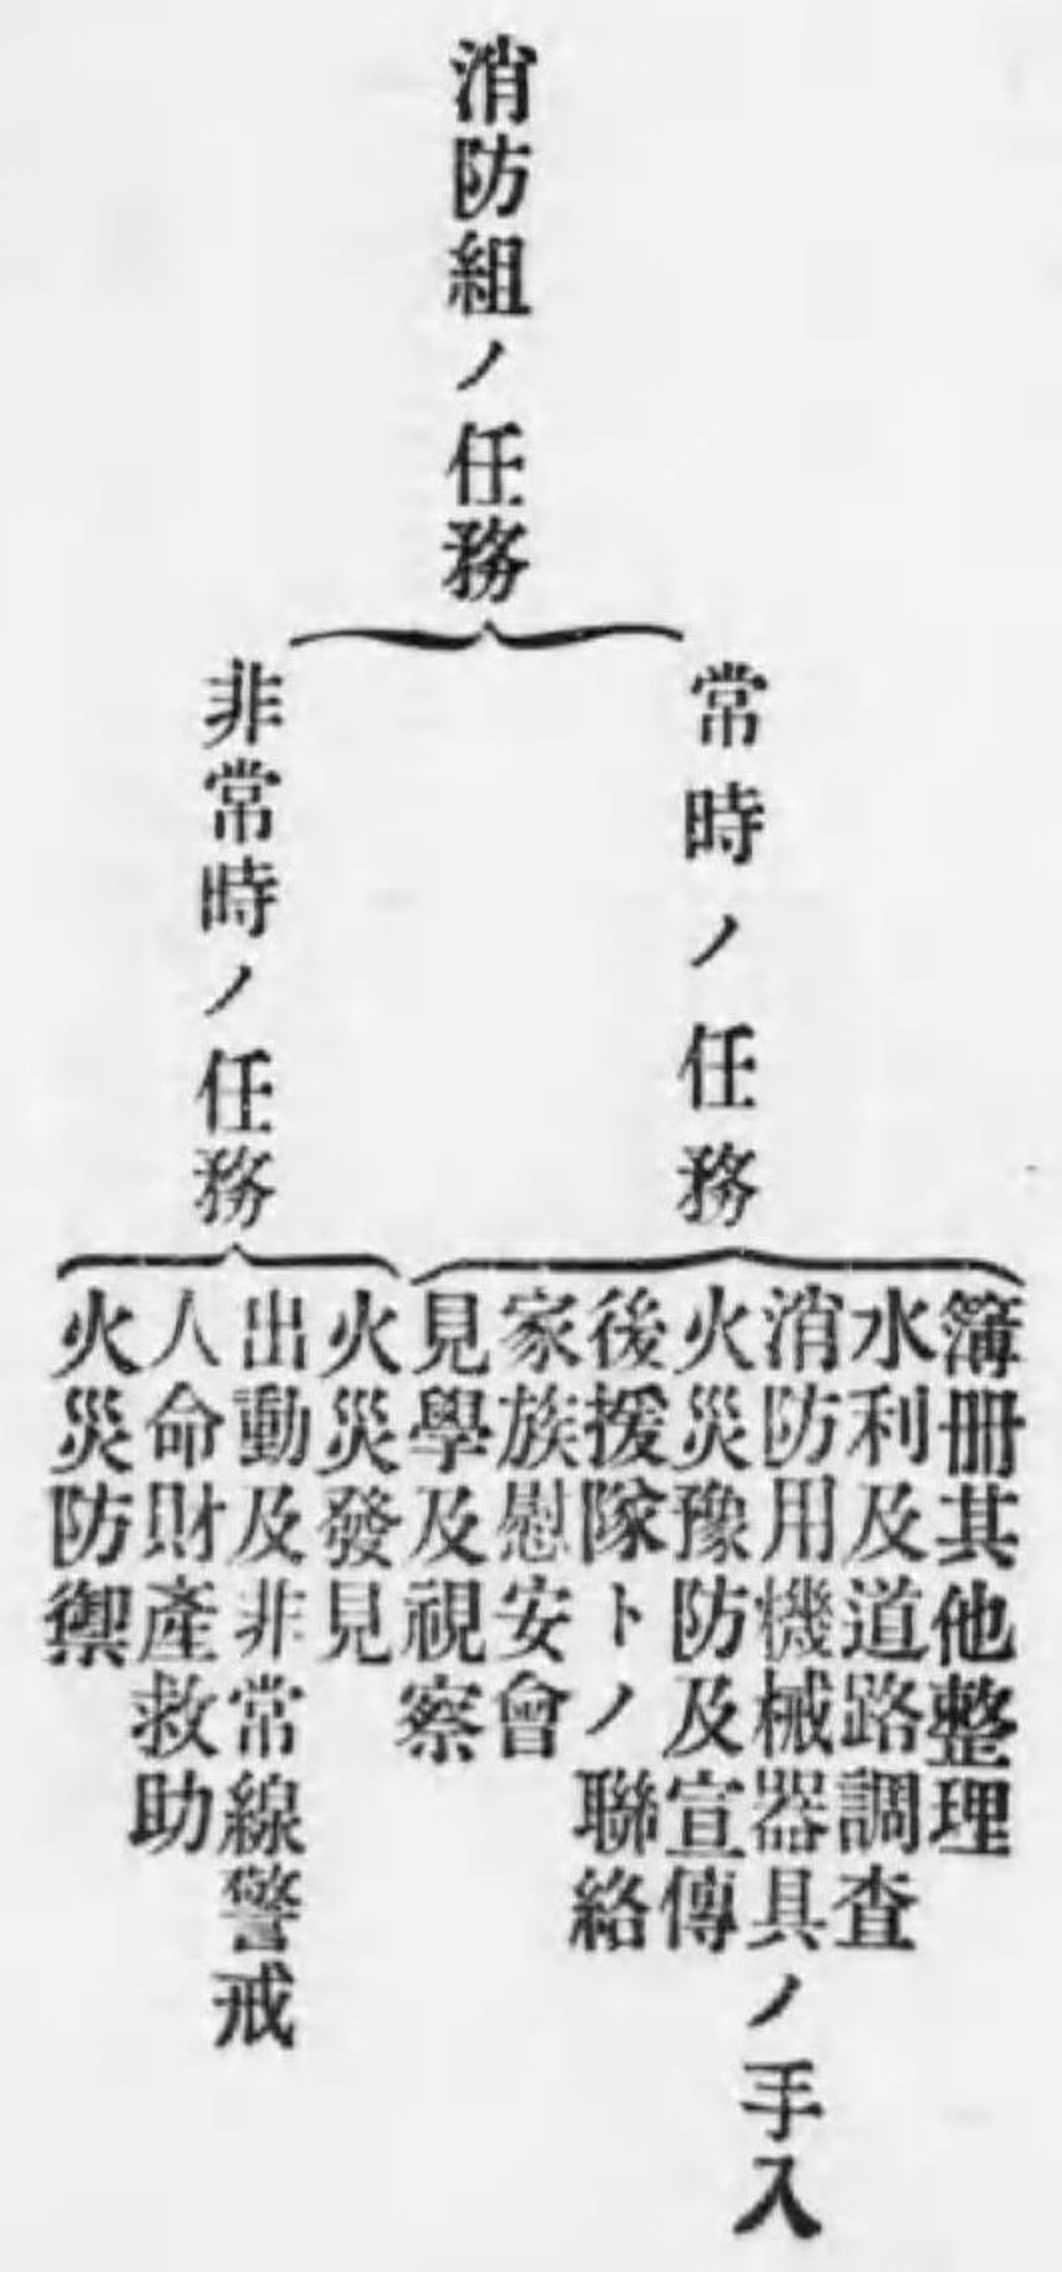 消防組ノ任務
常時ノ任務
簿冊其他整理
水利及道路調査
消防用機械器具ノ手入
火災豫防及宣傳
後援隊トノ聯絡
家族慰安會
見學及視察
非常時ノ任務
火災發見
出動及非常線警戒
人命財產救助
火災防禦